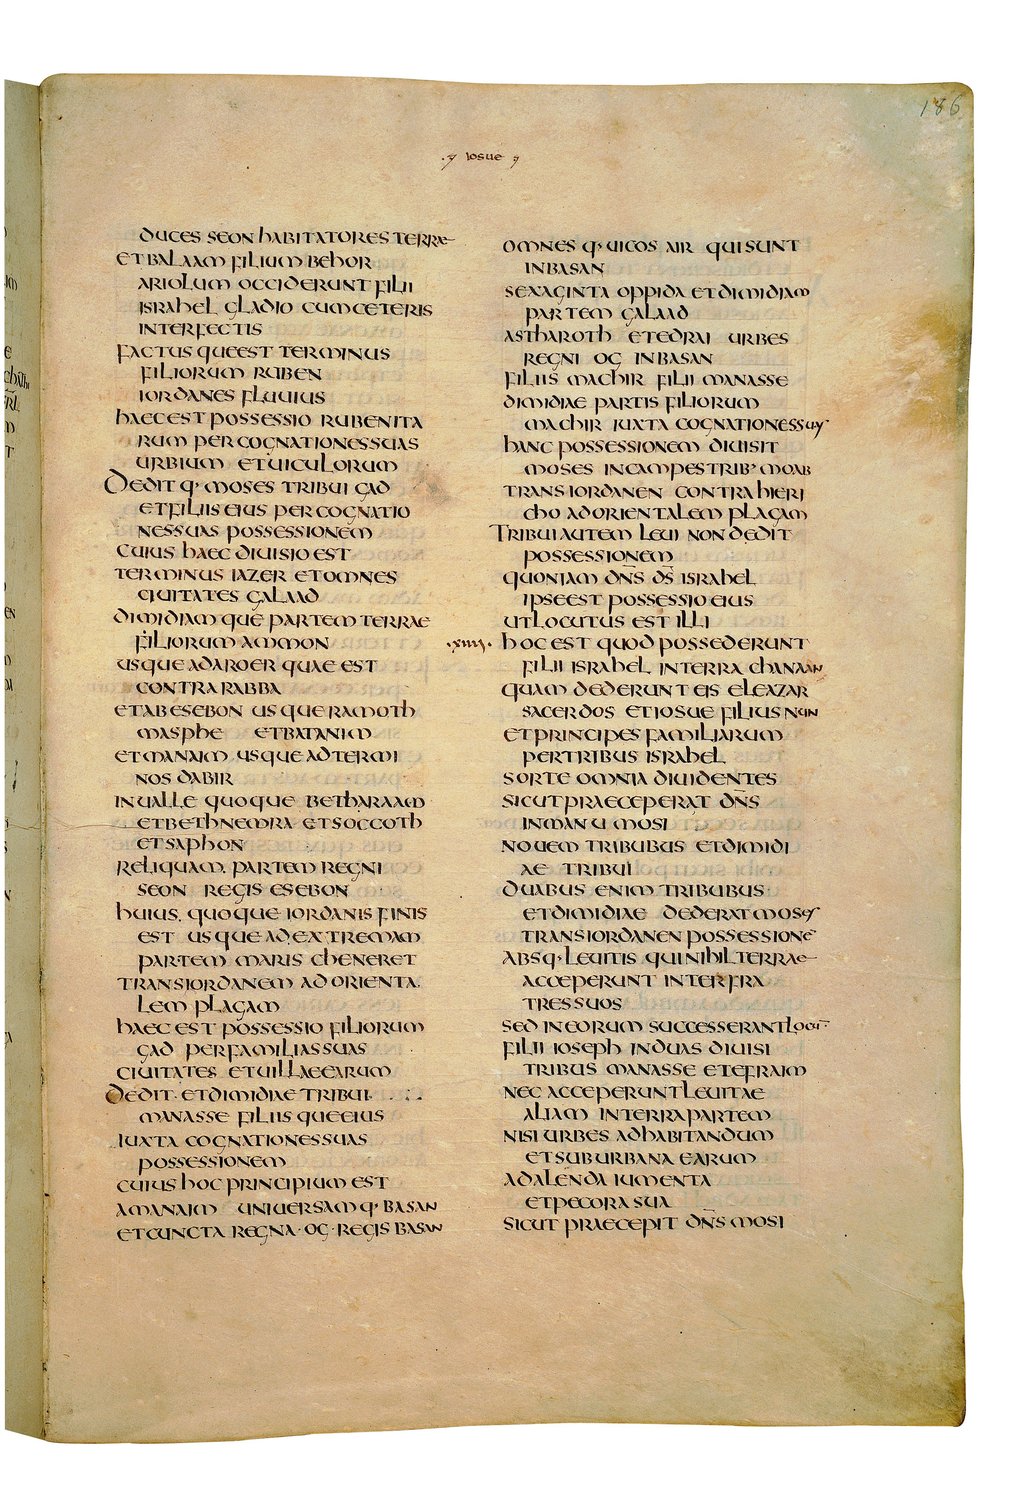 186
iosue
duces seon habitatores terrae
et balaam filium behor
ariolum occiderunt filii
israhel gladio cum ceteris
interfectis
factusque est terminus
filiorum ruben
iordanes fluuius
haec est possessio rubenita
rum per cognationes suas
urbium et uiculorum
Dedit q· moses tribui gad
et filiis eius per cognatio
nes suas possessionem
cuius haec diuisio est
terminus iazer et omnes
ciuitates galaad
dimidiamque partem terrae
filiorum ammon
usque ad aroer quae est
contra rabba
et ab esebon usque ramoth
masphe et batanim
et manaim usque ad termi
nos dabir
in ualle quoque betharaam
et bethnemra et soccoth
et saphon
reliquam partem regni
seon regis esebon
huius quoque iordanis finis
est usque ad extremam
partem maris cheneret
trans iordanem ad orienta
lem plagam
haec est possessio filiorum
gad per familias suas
ciuitates et uillae earum
Dedit et dimidiae tribui
manasse filiisque eius
iuxta cognationes suas
possessionem
cuius hoc principium est
a manaim uniuersam q· basan
et cuncta regna · og · regis basan
omnes q· uicos air qui sunt
in basan
sexaginta oppida et dimidiam
partem galaad
astharoth et edrai urbes
regni og in basan
filiis machir filii manasse
dimidiae partis filiorum
machir iuxta cognationes suas
hanc possessionem diuisit
moses in campestrib· moab
trans iordanen contra hieri
cho ad orientalem plagam
Tribui autem leui non dedit
possessionem
quoniam dn̄s ds̄ israhel
ipse est possessio eius
ut locutus est illi
·xiiii· hoc est quod possederunt
filii israhel in terra chanaan
quam dederunt eis eleazar
sacerdos et iosue filius nun
et principes familiarum
per tribus israhel
sorte omnia diuidentes
sicut praeceperat dn̄s
in manu mosi
nouem tribubus et dimidi
ae tribui
duabus enim tribubus
et dimidiae dederat moses
trans iordanen possessione
absq· leuitis qui nihil terrae
acceperunt inter fra
tres suos
sed in eorum successerant locū
filii ioseph in duas diuisi
tribus manasse et efraim
nec acceperunt leuitae
aliam in terra partem
nisi urbes ad habitandum
et suburbana earum
ad alenda iumenta
et pecora sua
sicut praecepit dn̄s mosi